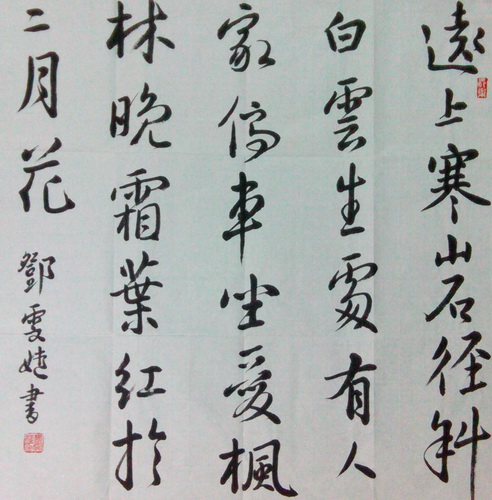 遠上寒山石徑斜
白雲生處有人
家停車坐愛楓
林晚霜葉紅於
二月花
鄧雯婕書